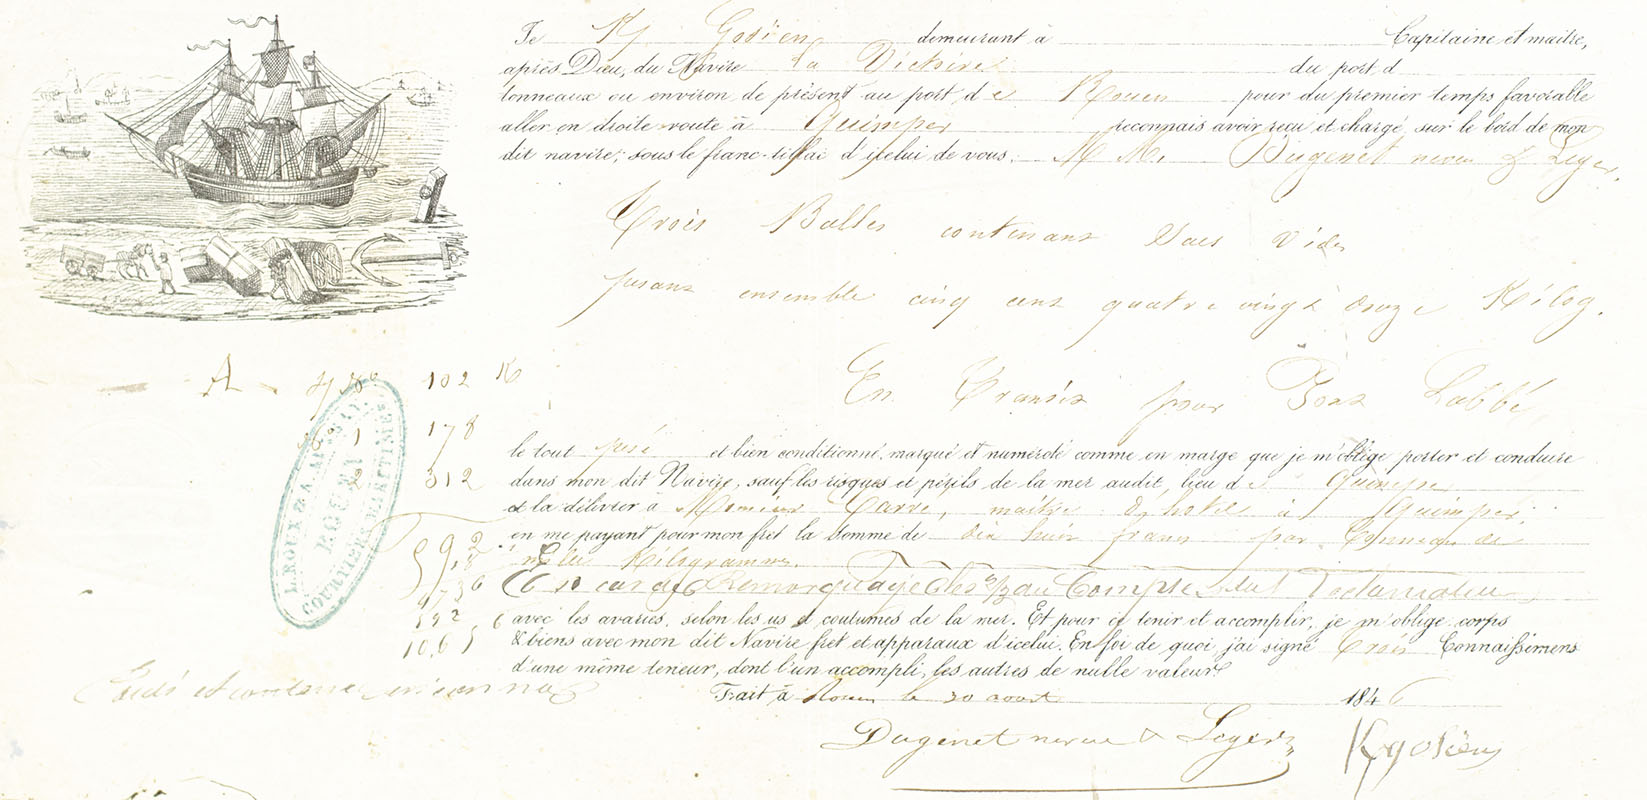 Je Ky Godien demeurant à Capitaine et maitre,
après Dieu, du Navire La Victoire du port d
tonneaux ou environ de présent au port de Rouen pour du premier temps favorable
aller en droite route à Quimper reconnais avoir reçu et chargé, sur le bord de mon
dit navire, sous le franc-tillac d'icelui de vous, M Mrs Dugenet neveu & Leger,
Trois Balles contenant Sacs vides
pesant ensemble cinq cent quatre vingt douze Kilog.
A 102 K
En Transit pour Pont Labbé,
1 178
le tout pesé et bien conditionné, marqué et numéroté comme en marge que je m'oblige porter et conduire
2 312
dans mon dit Navire, sauf les risques et périls de la mer audit, lieu de Quimper
& la délivrer à Monsieur Carre, maître d'hotel à Quimper,
en me payant pour mon fret la somme de dix huit francs par Tonneau de
592
mille Kilogrammes.
En cas de Remorquage au Compte
avec les avaries, selon les us & coutumes de la mer. Et pour ce tenir et accomplir, je m'oblige corps
10.65
& biens avec mon dit Navire fret et apparaux d'icelui. En foi de quoi j'ai signé Trois Connaissimens
d'une même teneur, dont l'un accompli, les autres de nulle valeur.
Fait à Rouen le 20 aout 1846
Dugenet neveu & Leger
Ky Godien
COURTIERS MARITIMES
ROUEN